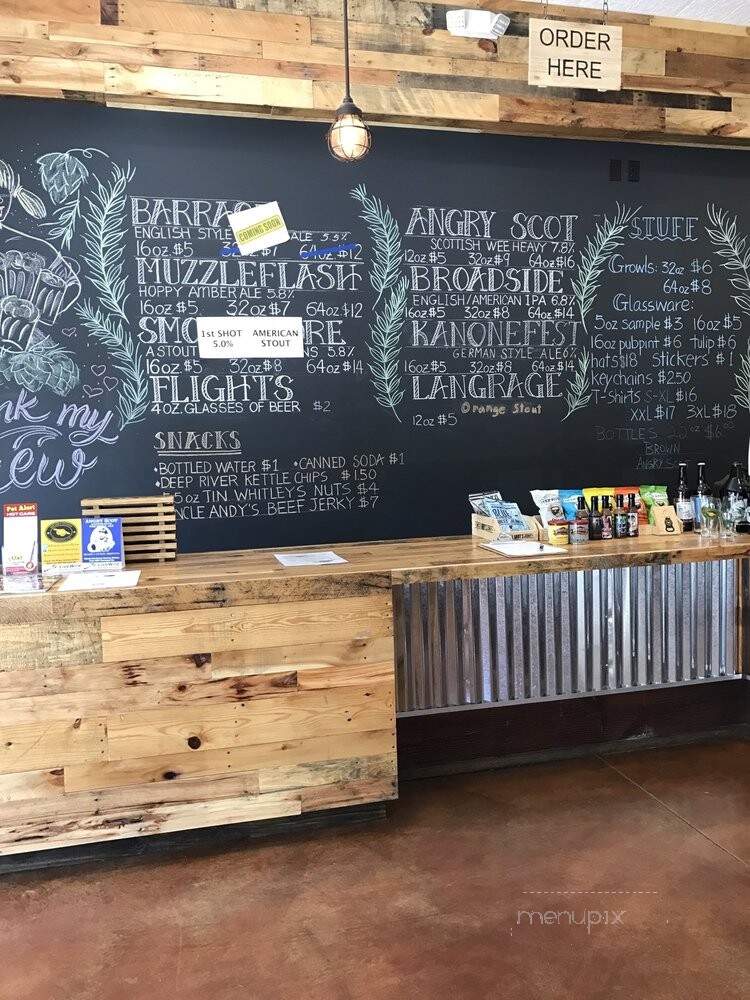 ORDER
HERE
COMING SOON
ENGLISH STYLE ALE 5.9%
16oz $5 $7 64oz $12
MUZZLEFLASH
HOPPY AMBER ALE 5.8%
16oz $5 32oz $7 64oz $12
1st SHOT AMERICAN
5.0% STOUT
A STOUT 5.8%
16oz $5 32oz $8 64oz $14
FLIGHTS
4 OZ. GLASSES OF BEER $2
SNACKS
•BOTTLED WATER $1 •CANNED SODA $1
•DEEP RIVER KETTLE CHIPS $1.50
5oz TIN WHITLEY'S NUTS $4
UNCLE ANDY'S BEEF JERKY $7
ANGRY SCOT
SCOTTISH WEE HEAVY 7.8%
12oz $5 32oz $9 64oz $16
BROADSIDE
ENGLISH/AMERICAN IPA 6.8%
16oz $5 32oz $8 64oz $14
KANONEFEST
GERMAN STYLE ALE 6%
16oz $5 32oz $8 64oz $14
LANGRAGE
Orange Stout
12oz $5
STUFF
Growls: 32oz $6
64oz $8
Glassware:
5oz sample $3 16oz $5
16oz pubpint $6 tulip $6
hats $18 stickers $1
keychains $2.50
T-Shirts S-XL $16
XXL $17 3XL $18
BOTTLES 22oz
BROWN
ANGRY
my
menupix